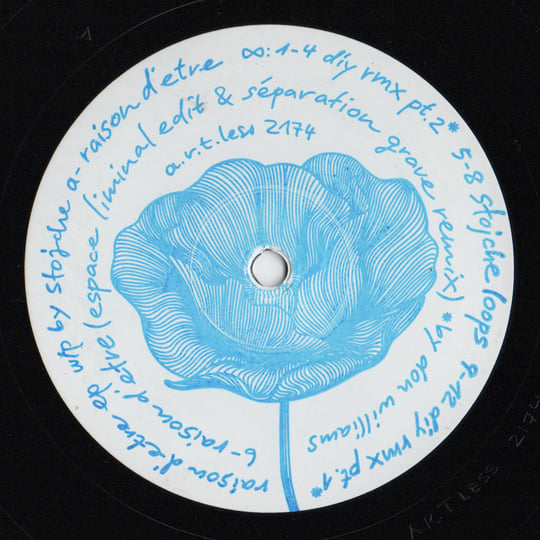 raison d'etre ep w/p by stojche a- raison d'etre ∞: 1-4 diy rmx pt.2* 5-8 stojche loops 9-12 diy rmx pt.1*
b- raison d'etre (espace liminal edit & séparation grave remix) *by don williams
a.r.t.less 2174
A.R.T LESS 2174